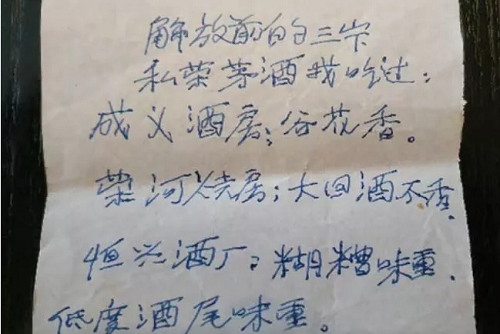 解放前的三家
私营茅酒我吃过：
成义酒房：谷花香。
荣河烧房：大回酒不香
恒兴酒厂：糊糟味重．
低度酒尾味重。